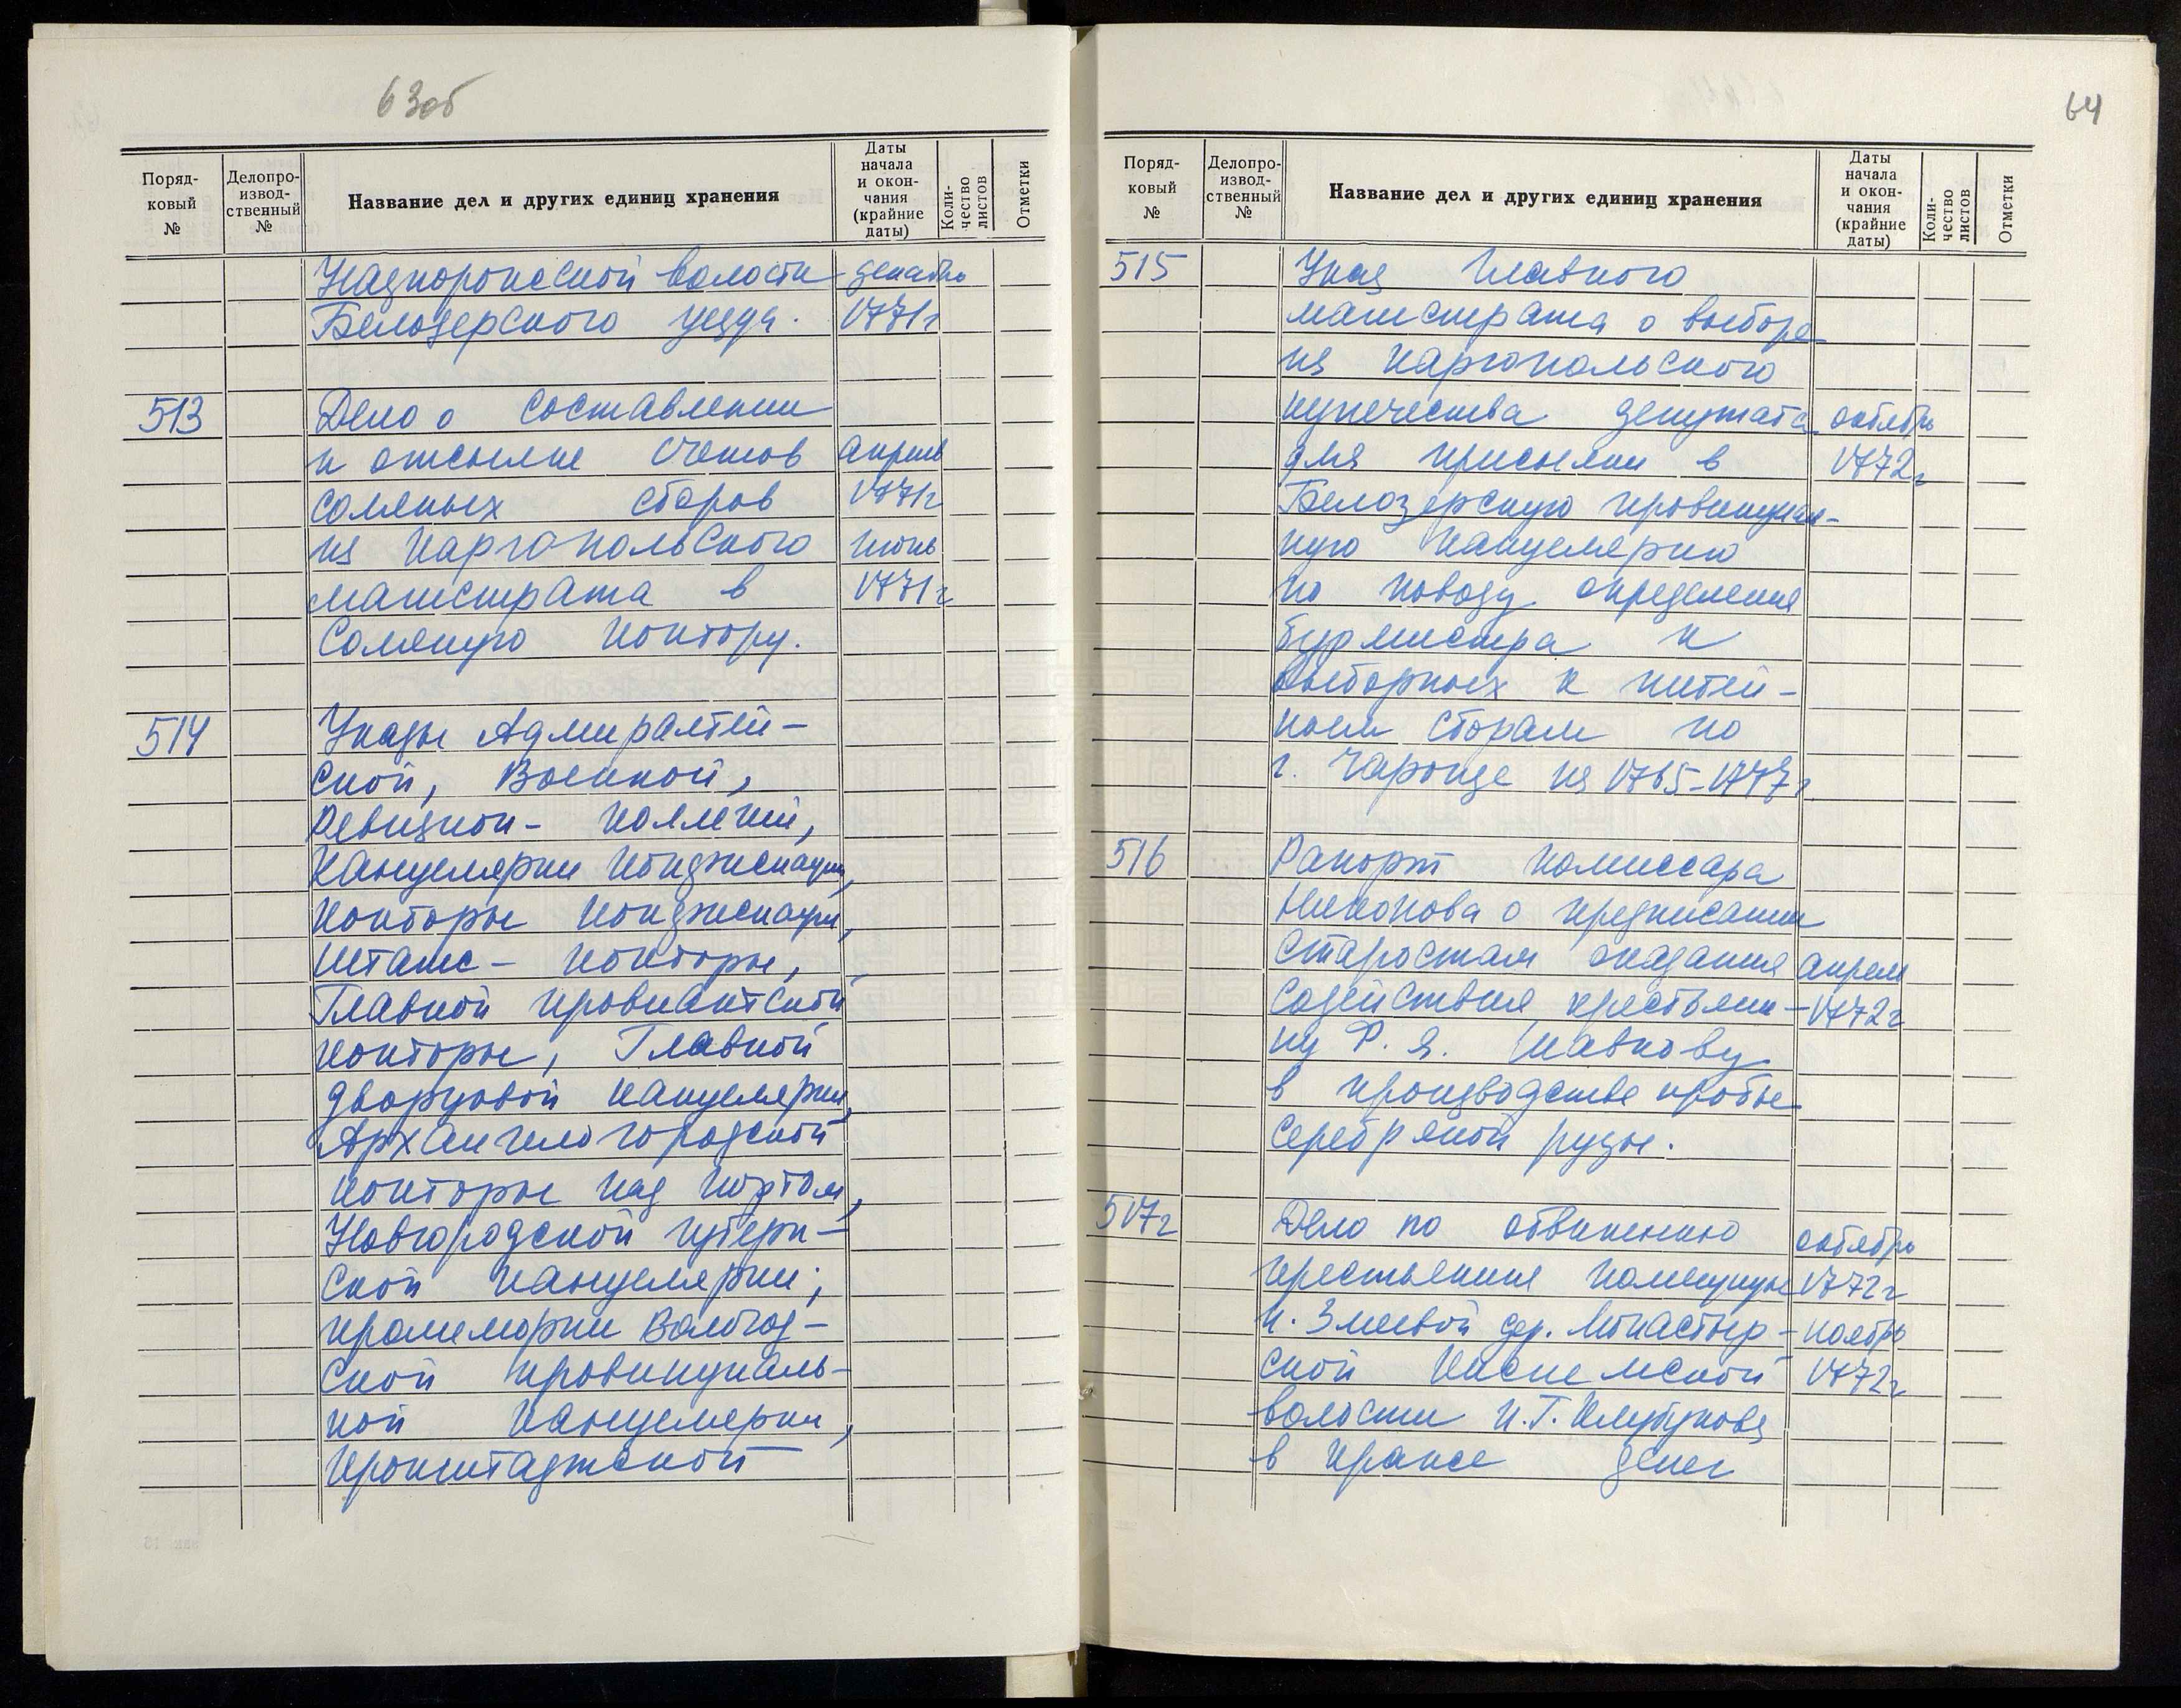 63об
Поряд-
ковый
№
Делопро-
извод-
ственный
№
Название дел и других единиц хранения
Даты
начала
и окон-
чания
(крайние
даты)
Коли-
чество
листов
Отметки
Надпорожской волости декабрь
Белозерского уезда. 1771г
513 Дело о составлении
и отсылке счетов апрель
соляных сборов 1771г
из Каргопольского июнь
магистрата в 1771г
Соляную контору.
514 Указы Адмиралтей-
ской, Военной,
Ревизион- коллегий,
Канцелярии конфискации,
Конторы конфискации,
Штатс- конторы,
Главной провиантской
конторы, Главной
дворцовой канцелярии,
Архангелогородской
конторы над портом,
Новгородской губерн-
ской канцелярии;
промемории Вологод-
ской провинциаль-
ной канцелярии,
Кронштадтской
64
Поряд-
ковый
№
Делопро-
извод-
ственный
№
Название дел и других единиц хранения
Даты
начала
и окон-
чания
(крайние
даты)
Коли-
чество
листов
Отметки
515 Указ Главного
магистрата о выборе
из каргопольского
купечества депутата октябрь
для присылки в 1772г
Белозерскую провинциаль-
ную канцелярию
по поводу определения
бурмистра и
выборных к питей-
ным сборам по
г. Чаронде на 1765-1777г
516 Рапорт комиссара
Никонова о предписании
старостам оказания апрель
содействия крестьяни- 1772г
ну Ф. Я. Шавкову
в производстве пробы
серебряной руды.
517г Дело по обвинению октябрь
крестьянина помещицы 1772г
Н. Змеевой дер. Монастыр- ноябрь
ской 1772г
волости И.Г.
в краже денег